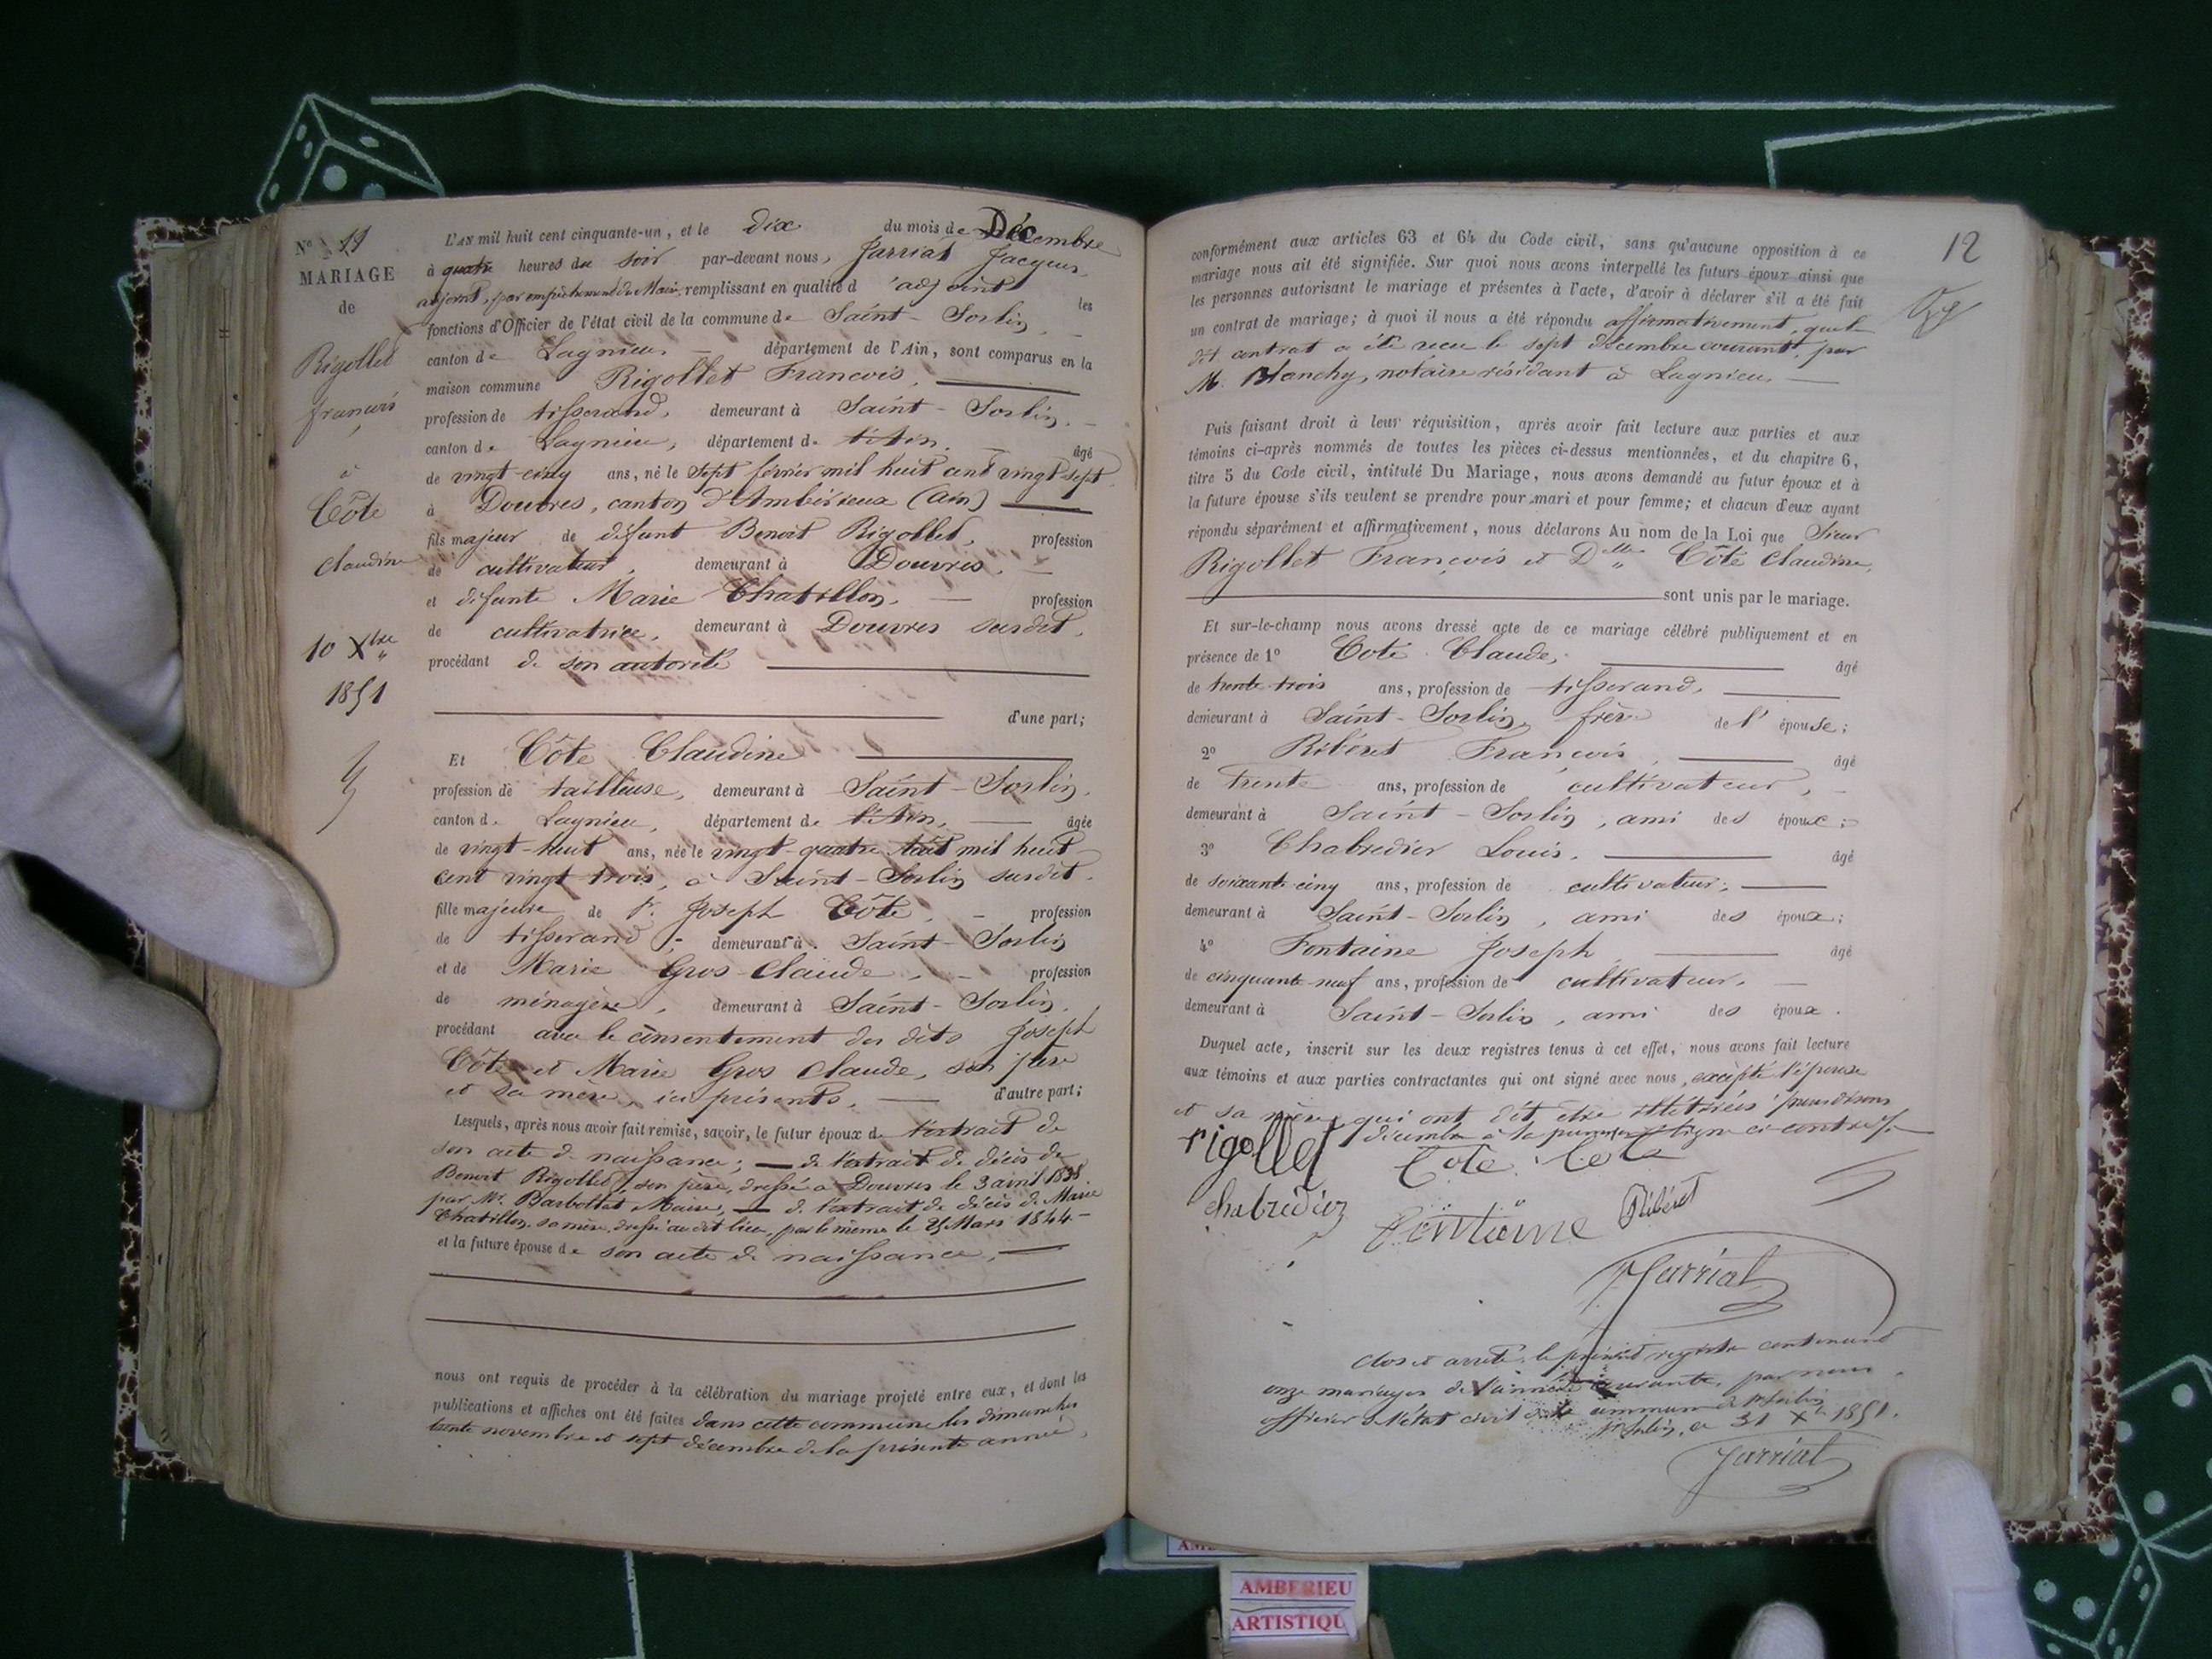 N° 11
MARIAGE
de
Rigollet
françois
à
Côte
Claudine
10 Xbre
1851
L'AN mil huit cent cinquante-un, et le dix du mois de Décembre
à quatre heures du soir par-devant nous, Jarriat Jacques,
adjoint, par empêchement du Maire, remplissant en qualité d'adjoint les
fonctions d'Officier de l'état civil de la commune de Saint-Sorlin,
canton de Lagnieu département de l'Ain, sont comparus en la
maison commune Rigollet Francois,
profession de tisserand, demeurant à Saint-Sorlin,
canton de Lagnieu, département de l'Ain, âgé
de vingt-cinq ans, né le sept février mil huit cent vingt sept
à Douvres, canton d'Ambérieux (Ain)
fils majeur de défunt Benoit Rigollet, profession
de cultivateur, demeurant à Douvres,
et défunte Marie Chatillon, profession
de cultivatrice, demeurant à Douvres susdit,
procédant de son autorité
d'une part;
Et Côte Claudine
profession de tailleuse, demeurant à Saint-Sorlin,
canton de Lagnieu, département de l'Ain, âgée
de vingt-huit ans, née le vingt-quatre août mil huit
cent vingt trois, à Saint-Sorlin susdit,
fille majeure de Joseph Côte, profession
de tisserand, demeurant à Saint-Sorlin
et de Marie Gros-Claude, profession
de ménagère, demeurant à Saint-Sorlin,
procédant avec le consentement des dits Joseph
Côte et Marie Gros Claude, son père
et sa mère, ici présents, d'autre part;
Lesquels, après nous avoir fait remise, savoir, le futur époux de l'extrait de
son acte de naissance; de l'extrait de décès de
Benoit Rigollet, son père, dressé à Douvres le 3 avril 1838
par Mr. Barbollat Maire, de l'extrait de décès de Marie
Chatillon, sa mère, dressé au dit lieu, par le même le Mars 1844
et la future épouse de son acte de naissance,
nous ont requis de procéder à la célébration du mariage projeté entre eux, et dont les
publications et affiches ont été faites dans cette commune les dimanches
trente novembre et sept décembre de la présente année,
12
conformément aux articles 63 et 64 du Code civil, sans qu'aucune opposition à ce
mariage nous ait été signifiée. Sur quoi nous avons interpellé les futurs époux ainsi que
les personnes autorisant le mariage et présentes à l'acte, d'avoir à déclarer s'il a été fait
un contrat de mariage; à quoi il nous a été répondu affirmativement, que le
dit contrat a été recu le sept décembre courant, par
M. Blanchy, notaire résidant à Lagnieu
Puis faisant droit à leur réquisition, après avoir fait lecture aux parties et aux
témoins ci-après nommés de toutes les pièces ci-dessus mentionnées, et du chapitre 6,
titre 5 du Code civil, intitulé Du Mariage, nous avons demandé au futur époux et à
la future épouse s'ils veulent se prendre pour mari et pour femme; et chacun d'eux ayant
répondu séparément et affirmativement, nous déclarons Au nom de la Loi que Sieur
Rigollet François et Dlle Côte Claudine,
sont unis par le mariage.
Et sur-le-champ nous avons dressé acte de ce mariage célébré publiquement et en
présence de 1° Cote Claude, âgé
de trente trois ans, profession de tisserand,
demeurant à Saint-Sorlin, frère de l'épouse;
2° Ribéret François, âgé
de trente ans, profession de cultivateur,
demeurant à Saint-Sorlin, ami des époux;
3° Chabredier Louis, âgé
de soixante-cinq ans, profession de cultivateur,
demeurant à Saint-Sorlin, ami des époux;
4° Fontaine Joseph âgé
de cinquante-neuf ans, profession de cultivateur,
demeurant à Saint-Sorlin, ami des époux.
Duquel acte, inscrit sur les deux registres tenus à cet effet, nous avons fait lecture
aux témoins et aux parties contractantes qui ont signé avec nous, excepté l'épouse
et sa mère, qui ont dit être illétrées; nous disons
décembre à la première ligne ci contre
rigollet Cote Cote
chabredier Fontaine Ribéret
Jarriat
Clos et arrêté le présent registre contenant
onze mariages de l'année courante, par nous,
officier de l'état civil de la commune de St Sorlin
St Sorlin, ce 31 Xbre 1851.
Jarriat
AMBERIEU
ARTISTIQU